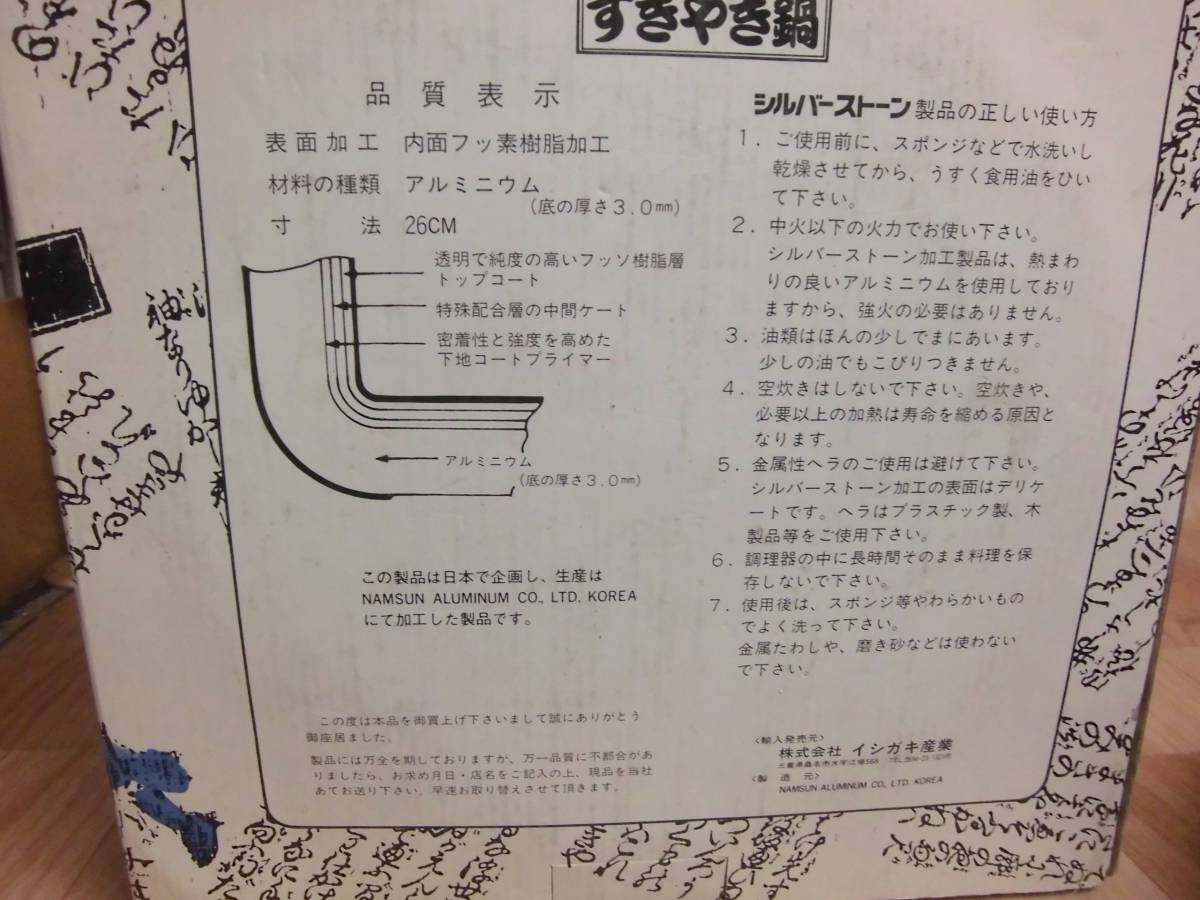 すきやき鍋
品質表示
表面加工 内面フッ素樹脂加工
材料の種類 アルミニウム
(底の厚さ3.0mm)
寸法 26CM
透明で純度の高いフッソ樹脂層
トップコート
特殊配合層の中間ケート
密着性と強度を高めた
下地コートプライマー
アルミニウム
(底の厚さ3.0mm)
この製品は日本で企画し、生産は
NAMSUN ALUMINUM CO., LTD. KOREA
にて加工した製品です。
この度は本品を御買上げ下さいまして誠にありがとう
御座居ました。
製品には万全を期しておりますが、万一品質に不都合があ
りましたら、お求め月日・店名をご記入の上、現品を当社
あてお送り下さい。早速お取り替えさせて頂きます。
シルバーストーン製品の正しい使い方
1. ご使用前に、スポンジなどで水洗いし
乾燥させてから、うすく食用油をひい
て下さい。
2. 中火以下の火力でお使い下さい。
シルバーストーン加工製品は、熱まわ
りの良いアルミニウムを使用しており
ますから、強火の必要はありません。
3. 油類はほんの少しでまにあいます。
少しの油でもこびりつきません。
4. 空炊きはしないで下さい。空炊きや、
必要以上の加熱は寿命を縮める原因と
なります。
5. 金属性ヘラのご使用は避けて下さい。
シルバーストーン加工の表面はデリケ
ートです。ヘラはプラスチック製、木
製品等をご使用下さい。
6. 調理器の中に長時間そのまま料理を保
存しないで下さい。
7. 使用後は、スポンジ等やわらかいもの
でよく洗って下さい。
金属たわしや、磨き砂などは使わない
で下さい。
<輸入発売元>
株式会社 イシガキ産業
三重県桑名市大字江場568
<製造元>
NAMSUN ALUMINUM CO., LTD. KOREA